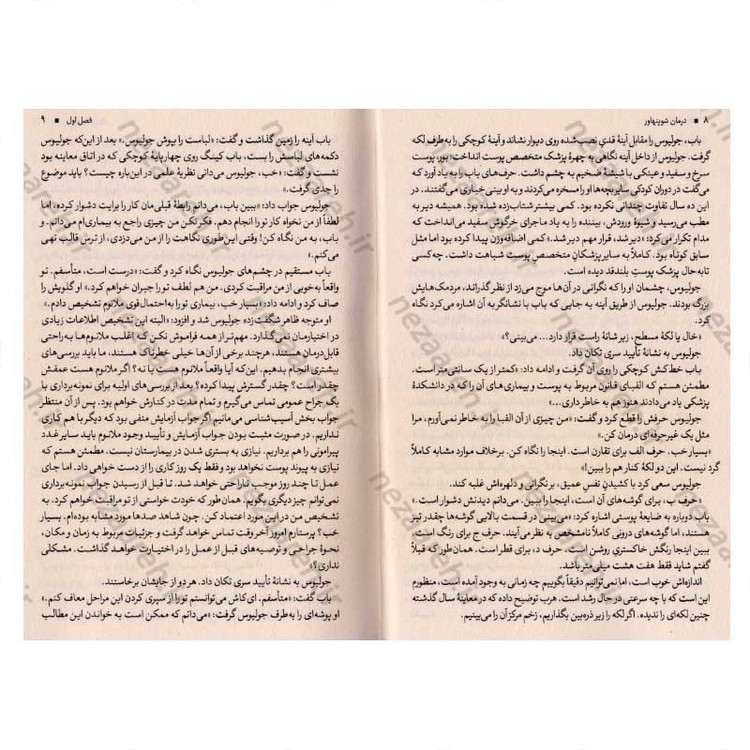 ۸ ■ درمان شوپنهاور
باب، جولیوس را مقابل آینهٔ قدیِ نصب‌شده روی دیوار نشاند و آینهٔ کوچکی را به‌طرف لکه
گرفت. جولیوس از داخل آینه نگاهی به چهرهٔ پزشک متخصص پوست انداخت: بور، پوست
سرخ و سفید و عینکی با شیشهٔ ضخیم به چشم داشت. حرف‌های باب را به یاد آورد که
می‌گفت در دوران کودکی سایر بچه‌ها او را مسخره می‌کردند و به او بینی خیاری می‌گفتند. در
این ده سال تفاوت چندانی نکرده بود. کمی بیشتر شتاب‌زده شده بود. همیشه دیر به
مطب می‌رسید و شیوهٔ ورودش، بیننده را به یاد ماجرای خرگوش سفید می‌انداخت که
مدام تکرار می‌کرد: «دیر شد، قرار مهم دیر شد.» کمی اضافه‌وزن پیدا کرده بود اما مثل
سابق کوتاه بود. کاملاً به سایر پزشکانِ متخصص پوست شباهت داشت. چه کسی
تابه‌حال پزشک پوستِ بلندقد دیده است.
جولیوس، چشمان او را که نگرانی در آن‌ها موج می‌زد از نظر گذراند، مردمک‌هایش
بزرگ بودند. جولیوس از طریق آینه به جایی که باب با نشانگر به آن اشاره می‌کرد نگاه
کرد.
«خال یا لکهٔ مسطح، زیر شانهٔ راست قرار دارد... می‌بینی؟»
جولیوس به نشانهٔ تأیید سری تکان داد.
باب خط‌کش کوچکی را روی آن گرفت و ادامه داد: «کمتر از یک سانتی متر است.
مطمئن هستم که الفبای قانون مربوط به پوست و بیماری‌های آن را که در دانشکدهٔ
پزشکی یاد می‌دادند هنوز هم به خاطر داری...»
جولیوس حرفش را قطع کرد و گفت: «من چیزی از آن الفبا را به خاطر نمی‌آورم، مرا
مثل یک غیرحرفه‌ای درمان کن.»
«بسیار خب. حرف الف برای تقارن است. اینجا را نگاه کن. برخلاف موارد مشابه کاملاً
گرد نیست. این دو لکهٔ کنار هم را ببین!»
جولیوس سعی کرد با کشیدن نفسِ عمیق، بر نگرانی و دلهره‌اش غلبه کند.
«حرف ب، برای گوشه‌های آن است، اینجا را ببین. می‌دانم دیدنش دشوار است.»
باب دوباره به ضایعهٔ پوستی اشاره کرد: «می‌بینی در قسمت بالایی گوشه‌ها چقدر تیز
هستند، اما گوشه‌های درونی کاملاً نامشخص به نظر می‌آیند. حرف ج برای رنگ است.
ببین اینجا رنگش خاکستریِ روشن است. حرف د، برای قطر است. همان‌طور که قبلاً
گفتم شاید فقط هفت هشت میلی‌متر باشد.
اندازه‌اش خوب است، اما نمی‌توانم دقیقاً بگوییم چه زمانی به وجود آمده است، منظورم
این است که با چه سرعتی در حال رشد است. هرب توضیح داده که در معاینهٔ سال گذشته
چنین لکه‌ای را ندیده. اگر لکه را زیر ذره‌بین بگذاریم، زخم مرکز آن را می‌بینیم.
فصل اول ■ ۹
باب آینه را زمین گذاشت و گفت: «لباست را بپوش جولیوس.» بعد از این‌که جولیوس
دکمه‌های لباسش را بست، باب کینگ روی چهارپایهٔ کوچکی که در اتاق معاینه بود
نشست و گفت: «خب، جولیوس می‌دانی نظریهٔ علمی در این‌باره چیست؟ باید موضوع
را جدی گرفت.»
جولیوس جواب داد: «ببین باب، می‌دانم رابطهٔ قبلی‌مان کار را برایت دشوار کرده، اما
لطفاً از من نخواه کار تو را انجام دهم. فکر نکن من چیزی راجع به بیماری‌ام می‌دانم. و
باب، به من نگاه کن! وقتی این‌طوری نگاهت را از من می‌دزدی، از ترس قالب تهی
می‌کنم.»
باب مستقیم در چشم‌های جولیوس نگاه کرد و گفت: «درست است، متأسفم. تو
واقعاً به‌خوبی از من مراقبت کردی. من هم لطف تو را جبران خواهم کرد.» او گلویش را
صاف کرد و ادامه داد: «بسیار خب، بیماری تو را به‌احتمال‌قوی ملانوم تشخیص دادم.»
او متوجه ظاهر شگفت‌زدهٔ جولیوس شد و افزود: «البته این تشخیص اطلاعات زیادی
در اختیارمان نمی‌گذارد. مهم‌تر از همه فراموش نکن که اغلب ملانوم‌ها به‌راحتی
قابل‌درمان هستند، هرچند برخی از آن‌ها خیلی خطرناک هستند، ما باید بررسی‌های
بیشتری انجام بدهیم. این‌که آیا واقعاً ملانوم هست یا نه؟ اگر ملانوم هست عمقش
چقدر است؟ چقدر گسترش پیدا کرده؟ بعد از بررسی‌های اولیه برای نمونه‌برداری با
یک جراح عمومی تماس می‌گیرم و تمام مدت در کنارش خواهم بود. پس از آن منتظر
جواب بخش آسیب‌شناسی می‌مانیم اگر جواب آزمایش منفی بود که دیگر با هم کاری
نداریم. در صورت مثبت بودن جواب آزمایش و تأیید وجود ملانوم باید سایر غدد
پیرامونی را هم برداریم. نیازی به بستری شدن در بیمارستان نیست. مطمئن هستم که
نیازی به پیوند پوست نخواهد بود و فقط یک روز کاری را از دست خواهی داد. اما جای
عمل تا چند روز موجب ناراحتی خواهد شد. تا قبل از رسیدن جواب نمونه‌برداری
نمی‌توانم چیز دیگری بگویم. همان‌طور که خودت خواستی از تو مراقبت خواهم کرد. به
تشخیص من در این مورد اعتماد کن. چون شاهد صدها مورد مشابه بوده‌ام. بسیار
خب؟ پرستارم امروز آخروقت تماس خواهد گرفت و جزئیات مربوط به زمان و مکان،
نحوهٔ جراحی و توصیه‌های قبل از عمل را در اختیارت خواهد گذاشت. مشکلی
نداری؟»
جولیوس به نشانهٔ تأیید سری تکان داد. هر دو از جایشان برخاستند.
باب گفت: «متأسفم. ای‌کاش می‌توانستم تو را از سپری کردن این مراحل معاف کنم.»
او پوشه‌ای را به‌طرف جولیوس گرفت: «می‌دانم که ممکن است به خواندن این مطالب
nezaareh.ir